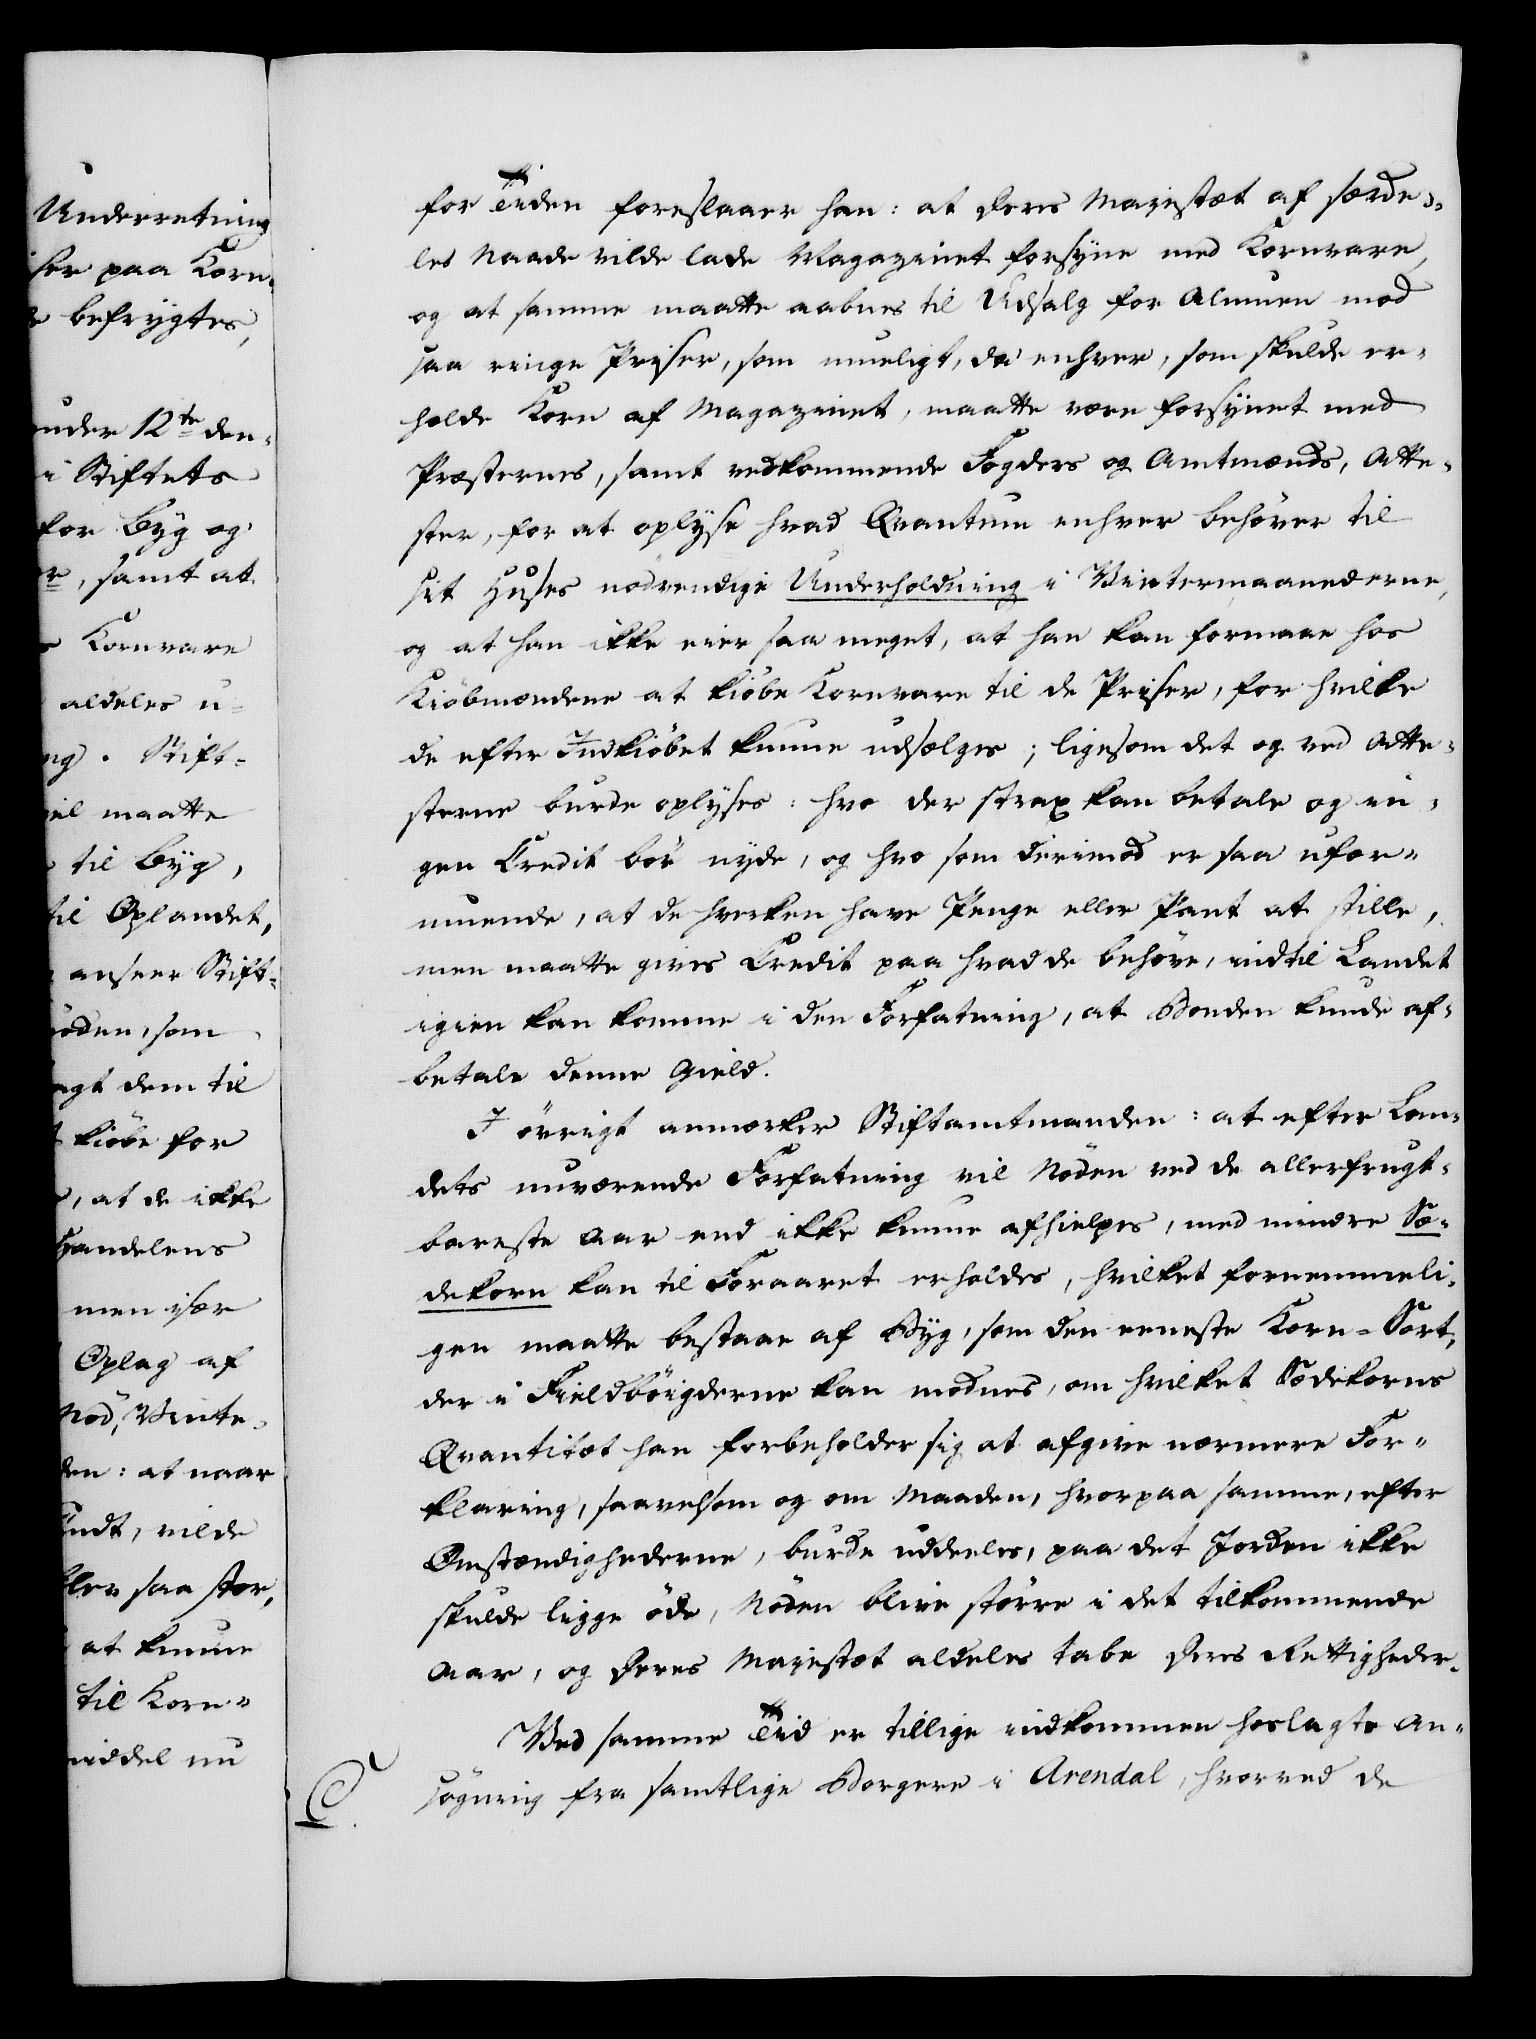 Underretning
iser paa Korn-
befrygtes,
under 12te den-
i Stiftets
for Byg og
samt at
Kornvare
aldeles u-
ng. Stift-
vel maatte
til Byg,
til Oplandet,
anseer Stift-
öden, som
agt dem til
kiöbe for
, at de ikke
Handelens
men især
Oplag af
Nöd, Vinte-
den: at naar
endt, vilde
blev saa stor,
at kunne
til Korn-
middel nu
for Tiden foreslaaer han: at Deres Majestæt af særde-
les Naade vilde lade Magazinet forsyne med Kornvare,
og at samme maatte aabnes til Udsalg for Almuen mod
saa ringe Priser, som mueligt, da enhver, som skulde er-
holde Korn af Magazinet, maatte være forsynet med
Præsternes, samt vedkommende Fogders og Amtmænds, Atte-
ster, for at oplyse hvad Qvantum enhver behöver til
sit Huses nödvendige Underholdning i Vintermaanederne,
og at han ikke eier saa meget, at han kan formaae hos
Kiöbmændene at kiöbe Kornvare til de Priser, for hvilke
de efter Indkiöbet kunne udsælges; ligesom det og ved Atte-
sterne burde oplyses: hvo der strax kan betale og in-
gen Credit bör nyde, og hvo som derimod er saa ufor-
muende, at de hverken have Penge eller Pant at stille,
men maatte gives Credit paa hvad de behöve, indtil Landet
igien kan komme i den Forfatning, at Bonden kunde af-
betale denne Gield.
I övrigt anmærker Stiftamtmanden: at efter Lan-
dets nuværende Forfatning vil Nöden ved de allerfrugt-
bareste Aar end ikke kunne afhielpes, med mindre Sæ-
dekorn kan til Foraaret erholdes, hvilket fornemmeli-
gen maatte bestaae af Byg, som den eeneste Korn-Sort,
der i Fieldböigderne kan modnes, om hvilket Sædekorns
Qvantitæt han forbeholder sig at afgive nærmere For-
klaring, saavelsom og om Maaden, hvorpaa samme, efter
Omstændighederne, burde uddeeles, paa det Jorden ikke
skulde ligge öde, Nöden blive större i det tilkommende
Aar, og Deres Majestæt aldeles tabe Deres Rettigheder.
Ved samme Tid er tillige indkommen hoslagte An-
C. sögning fra samtlige Borgere i Arendal, hvorved de